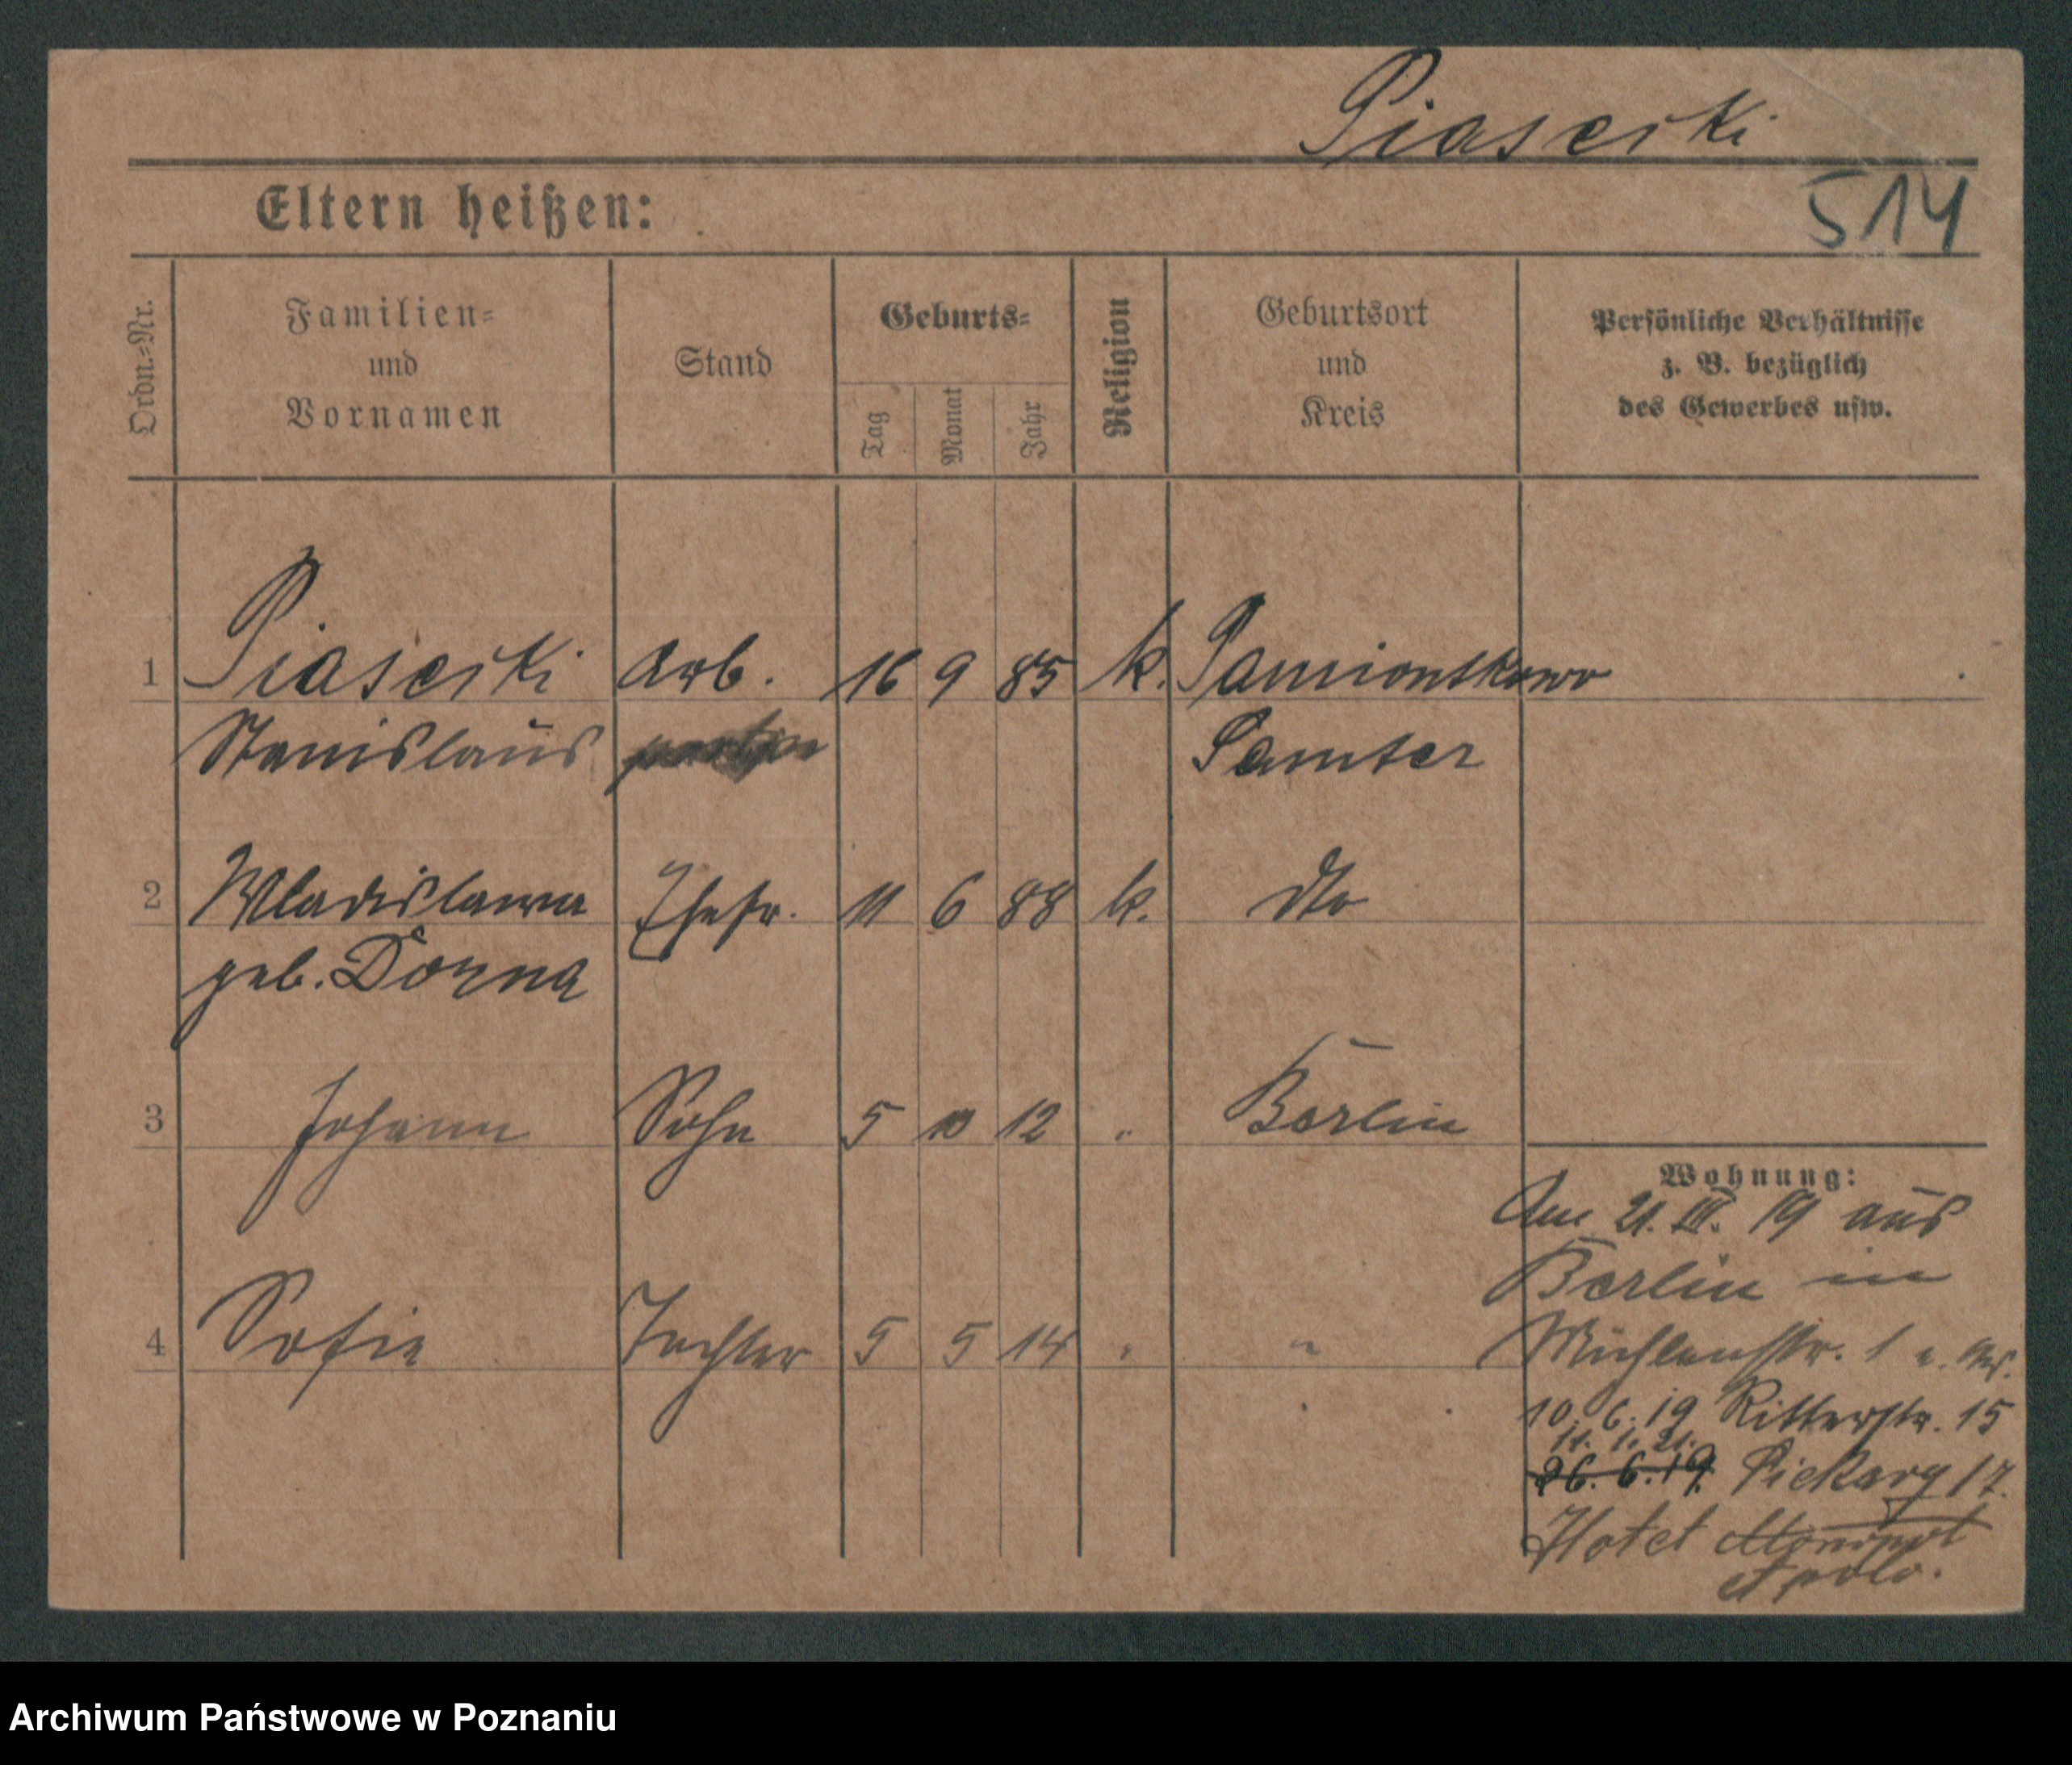 Piaseski
Eltern heißen:
514
Ordn.=Nr.
Familien=
und
Vornamen
Stand
Geburts=
Tag
Monat
Jahr
Religion
Geburtsort
und
Kreis
Persönliche Verhältnisse
z. B. bezüglich
des Gewerbes usw.
1 Piaseski Arb. 16 9 85 k. Pamiontkowo
Stanislaus Samter
2 Wladislawa Ehefr. 11 6 88 k. dto
geb. Dorna
3 Johann Sohn 5 10 12 " Berlin
4 Sofie Tochter 5 5 14 " "
Wohnung:
Am 21. III. 19 aus
Berlin in
Mühlenstr. 1
10. 6. 19 Ritterstr. 15
11. 1. 21.
26. 6. 19. Piekary 17.
Hotel Monopol
Apolo.
Archiwum Państwowe w Poznaniu